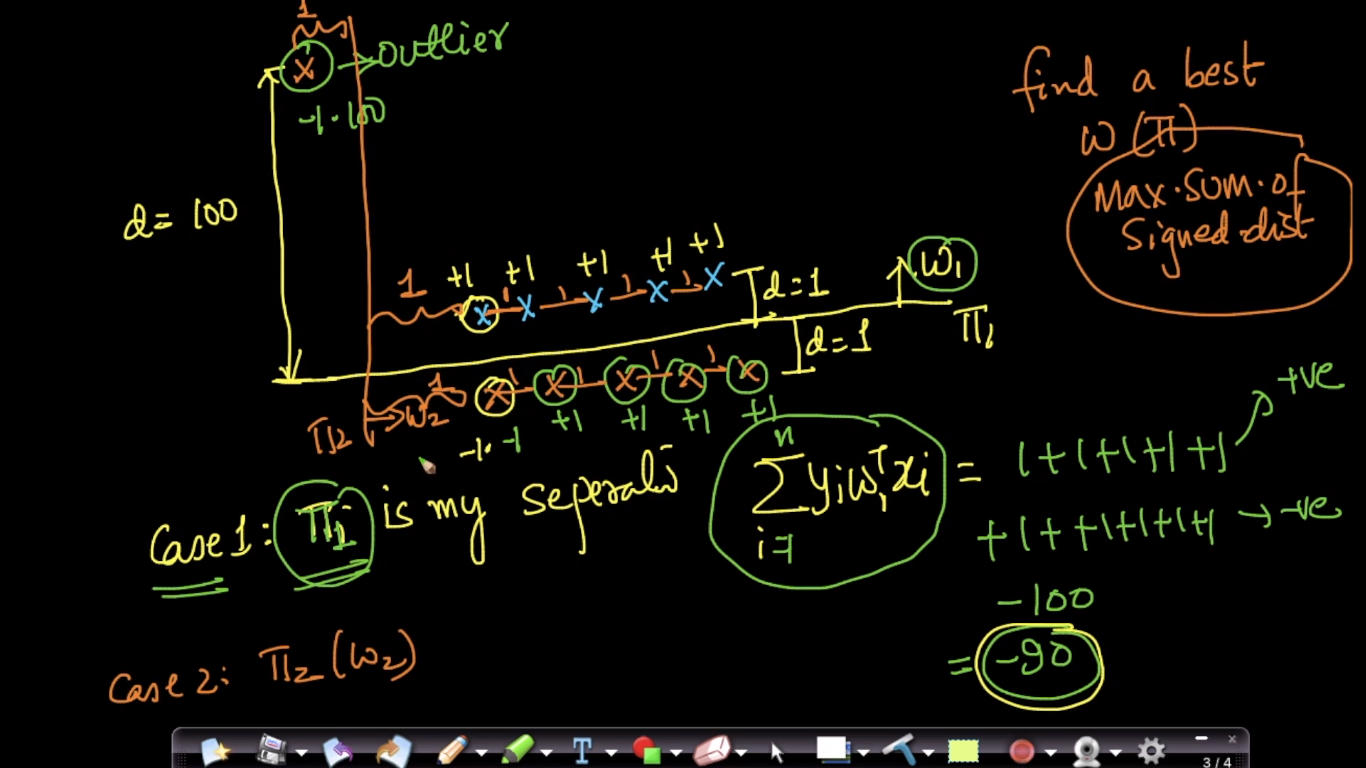 1
outlier
-1·100
d = 100
find a best
w (π)
Max·Sum·of
Signed·dist
1 +1 +1 +1 +1 +1
x x x x x
1 1 1 1
d=1
w₁
π₁
d=1
x x x x x
1 1 1 1 1
π₂ w₂
-1·-1 +1 +1 +1 +1
Case 1: π₁ is my seperatio
n
Σ yᵢw₁ᵀxᵢ = 1+1+1+1+1 +ve
i=1
+1++1+1+1+1 → -ve
-100
= -90
Case 2: π₂ (w₂)
T
3 / 4